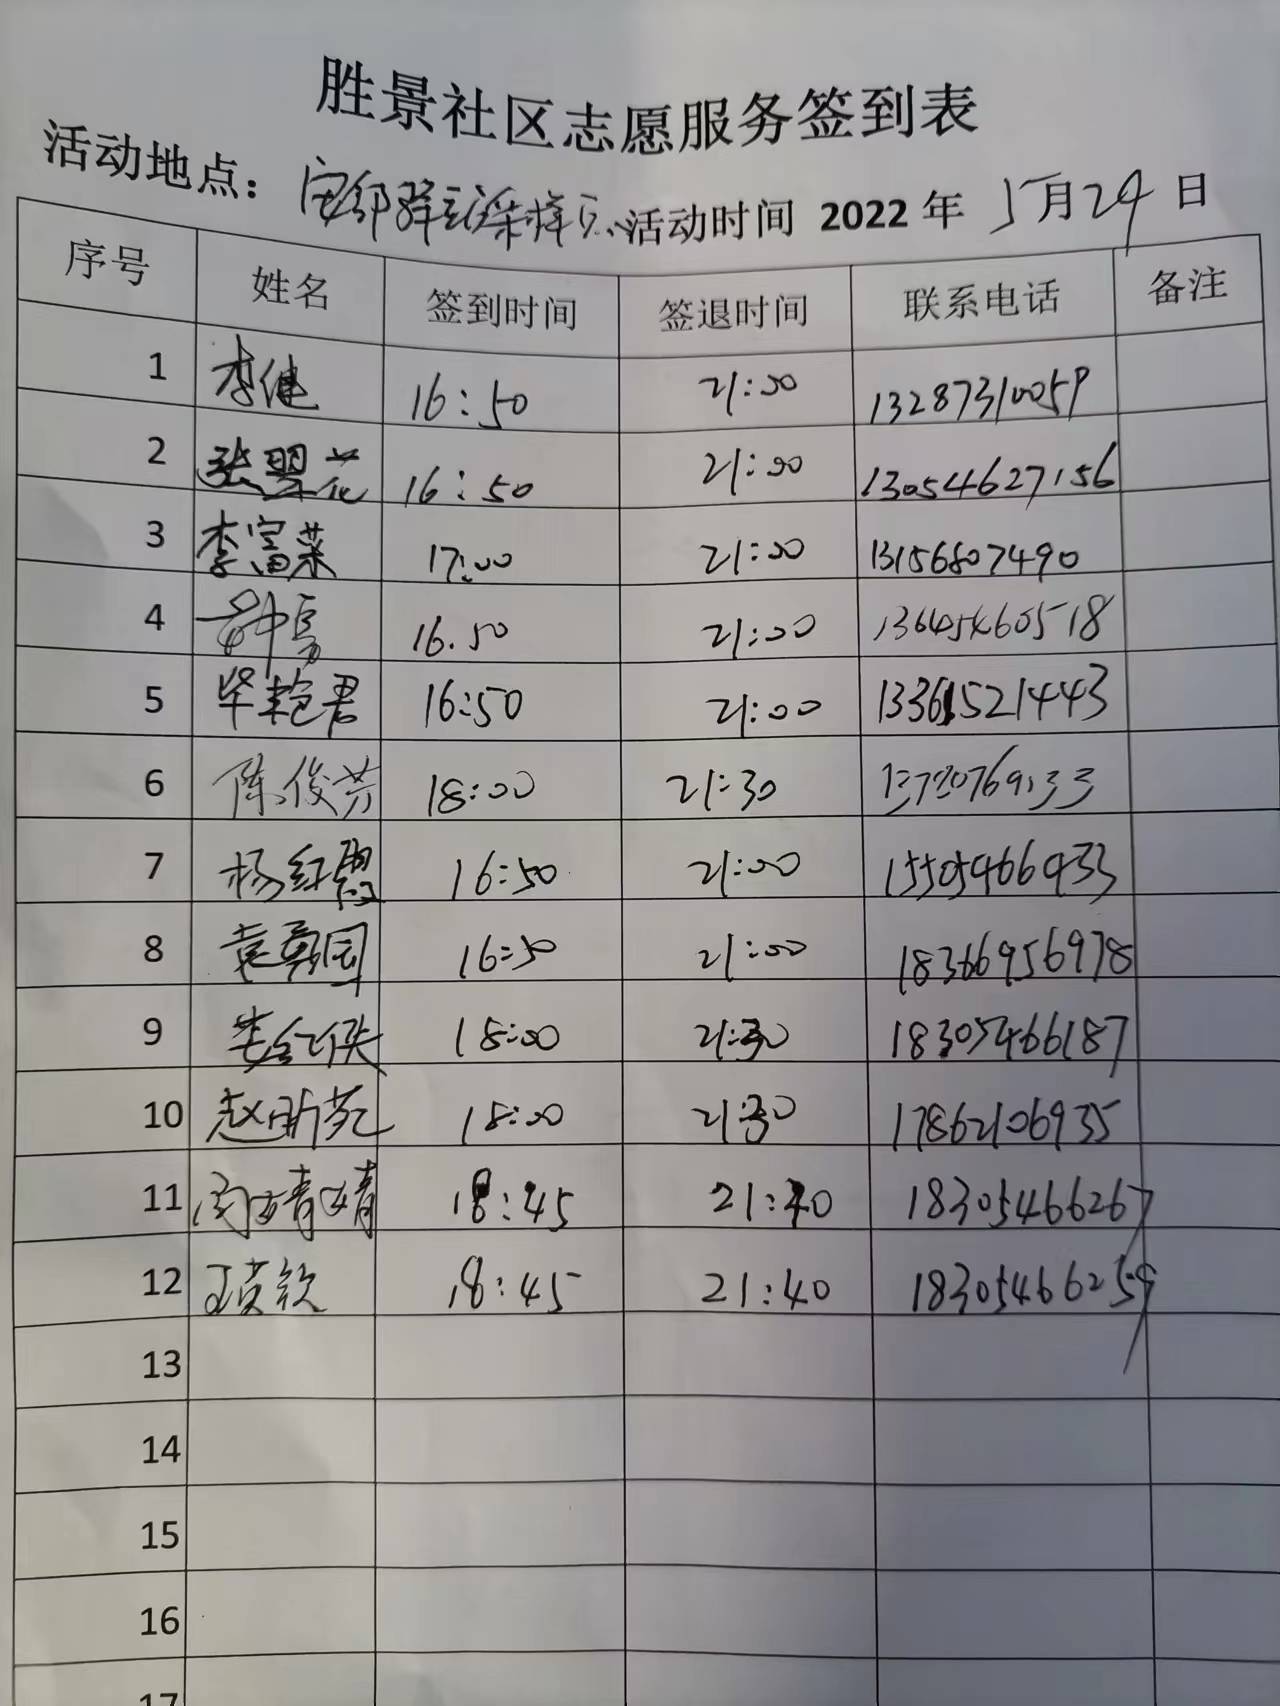 胜景社区志愿服务签到表
活动地点： 活动时间 2022 年 5月24日
序号 姓名 签到时间 签退时间 联系电话 备注
1 李健 16:50 21:00 13287310059
2 张翠花 16:50 21:00 13054627156
3 李富菜 17:00 21:00 13156807490
4 16:50 21:00
5 毕艳君 16:50 21:00 13361521443
6 陈俊芳 18:00 21:30
7 杨红霞 16:50 21:00 15505466933
8 袁勇国 16:50 21:00 18366956978
9 娄红侠 18:00 21:30 18305466187
10 赵昕苑 18:00 21:30 17862106935
11 闵婧婧 18:45 21:40 18305466267
12 王英钦 18:45 21:40 18305466259
13
14
15
16
17